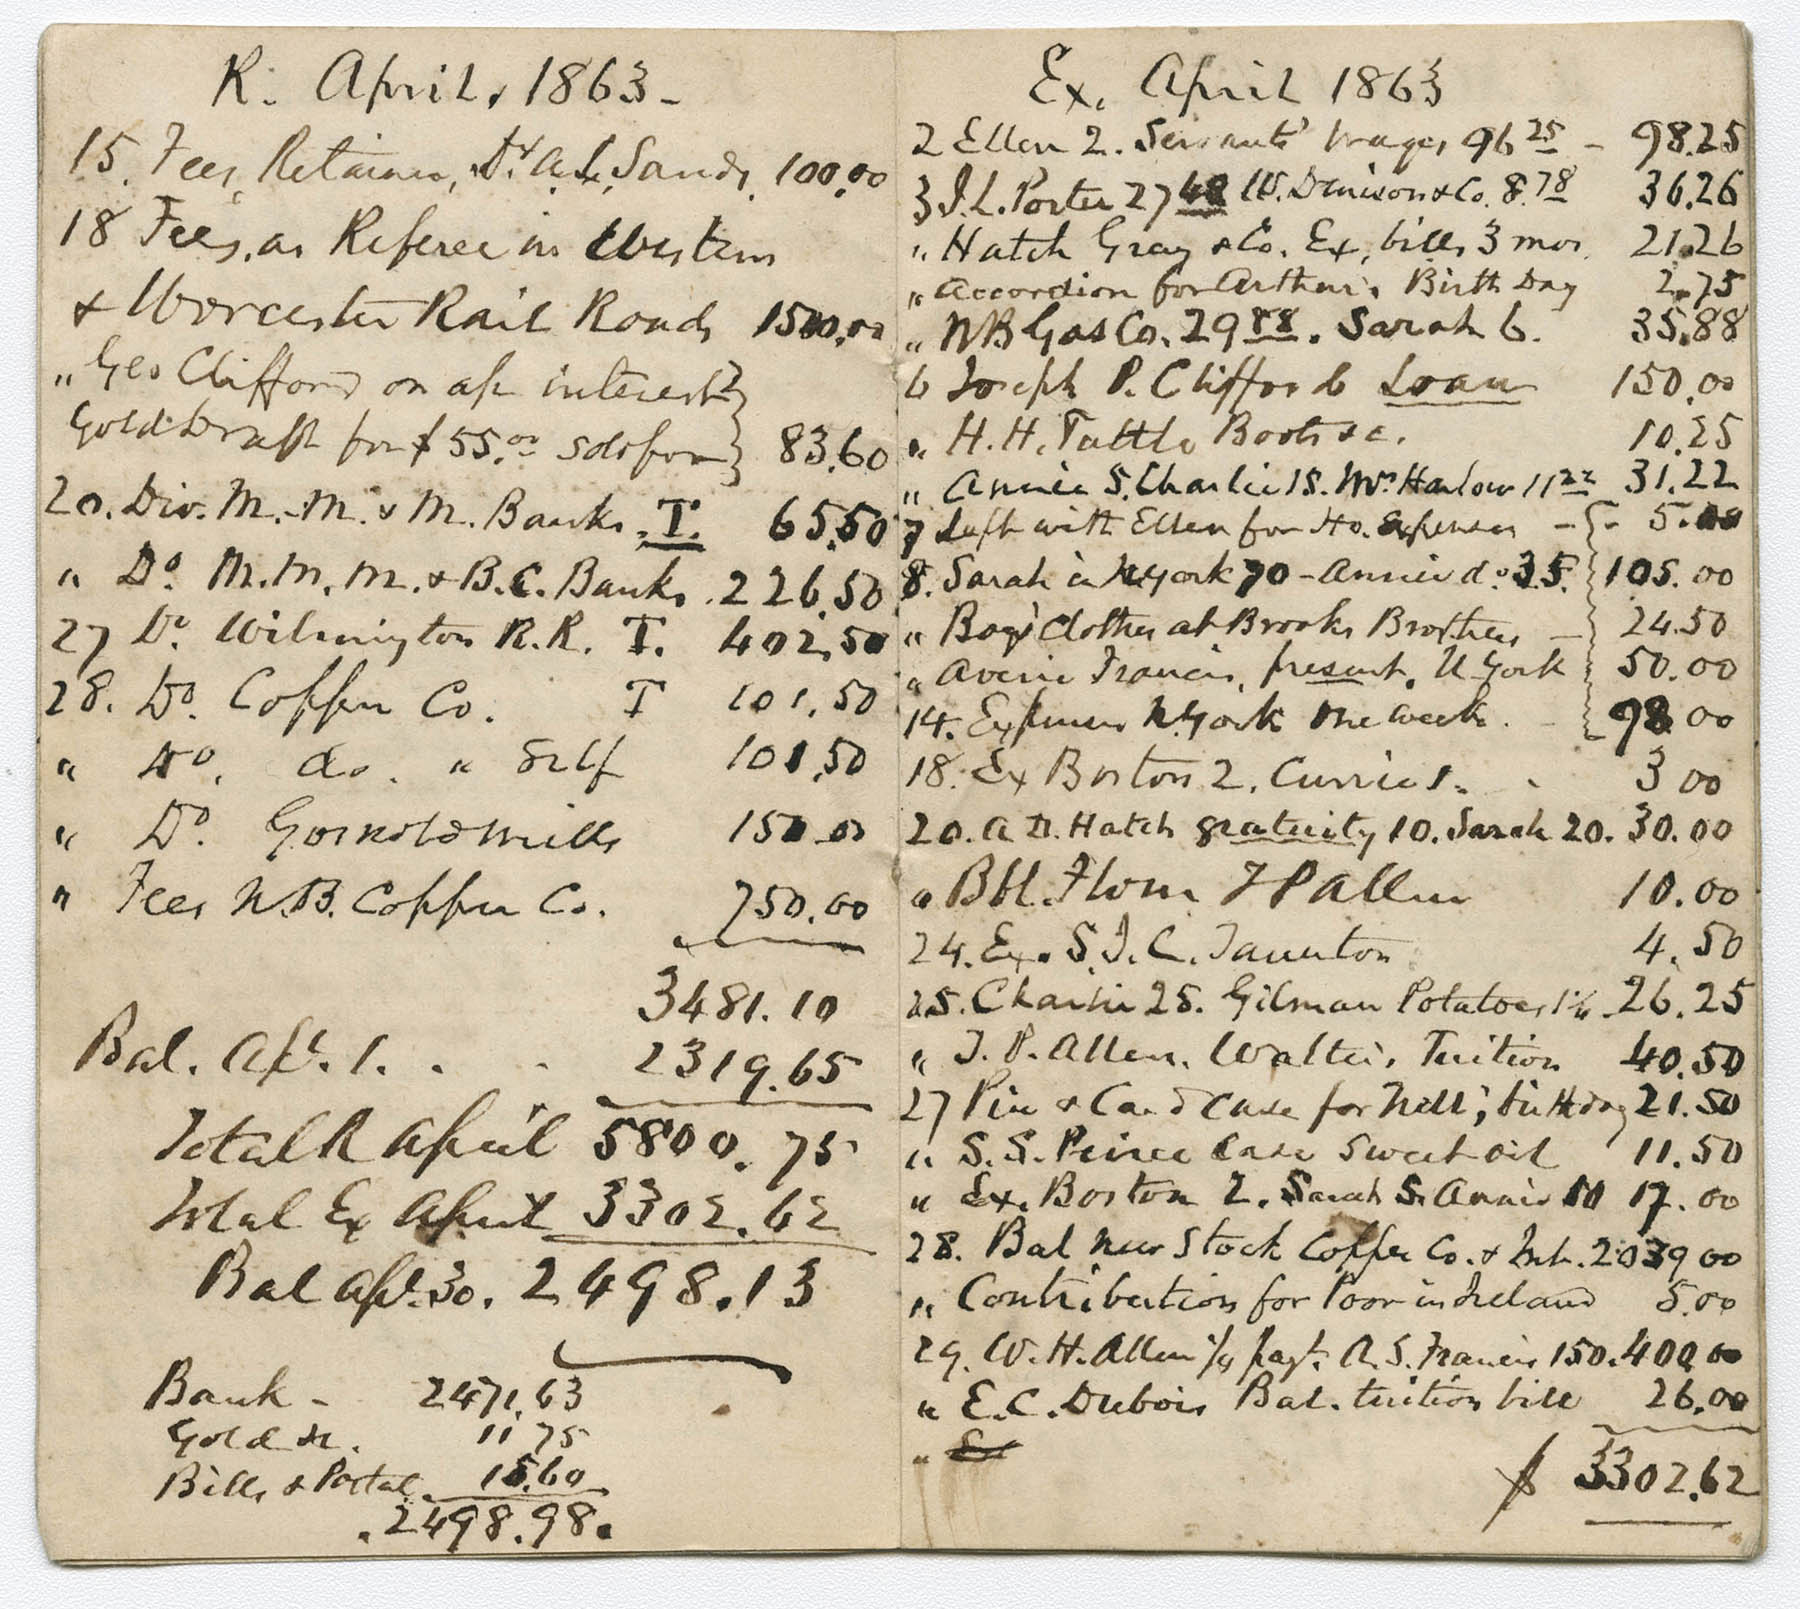 R. April, 1863-
15. Fees, Retainer, Dr. A. L. Sands, 100.00
18 Fees, as Referee in Western
& Worcester Rail Roads 1500.00
" Geo Clifford on a/c interest
Gold Draft for $55.00 sold for 83.60
20. Div. M.-M. & M. Banks, T. 65.50
" Do M. M. M. & B. C. Banks. 226.50
27 Do. Wilmington R. R. T. 402.50
28. Do. Copper Co. T 101.50
" Do. do. " Self 101.50
" Do. Gosnold Mills 150.00
" Fees N.B. Copper Co. 750.00
3481.10
Bal. Apl. 1. . . 2319.65
Total R April 5800.75
Total Ex April 3302.62
Bal Apl. 30. 2498.13
Bank - 2471.63
Gold &c. 11 75
Bills & Postal 15.60
.2498.98.
Ex. April 1863
2 Ellen 2. Servants' Wages 96 25 - 98.25
3 J. L. Porter 27 48 W. Denison & Co. 8.78 36.26
" Hatch Gray & Co. Ex. bills 3 mos. 21.26
" Accordion for Arthur's Birth Day 2.75
" NB Gas Co. 29 88. Sarah 6. 35.88
6 Joseph P. Clifford Loan 150.00
" H. H. Tuttle Boots &c. 10.25
" Annie 5. Charlie 15. Mrs Harlow 11 22 31.22
7 Left with Ellen for Ho. Expenses - - 5.00
8. Sarah in N. York 70 - Annie do. 35. 105.00
" Boys' Clothes at Brooks Brothers - 24.50
" Francis, present. N York 50.00
14. Expenses N. York one week. - 98 00
18. Ex Boston 2. Currie 1. . 3 00
20. A D. Hatch gratuity 10. Sarah 20. 30.00
" Bbl. Flour F P Allen 10.00
24. Ex. S. J. C. Taunton 4.50
25. Charlie 25. Gilman Potatoes 1¼. 26.25
" J. P. Allen. Walter's Tuition 40.50
27 Pin & Card Case for Nell's birthday 21.50
" S. S. Peirce Case Sweet oil 11.50
" Ex. Boston 2. Sarah 5. Annie 10 17.00
28. Bal New Stock Copper Co. & Int. 2039 00
" Contribution for Poor in Ireland 5.00
29. W. H. Allen ¼ payt. A. S. Francis 150. 400.00
" E. C. Dubois Bal. tuition bill 26.00
" Ex
$ 3302.62